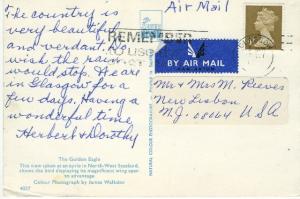 The country is
very beautiful
and verdant. No
wish the rain
would stop. We are
in Glasgow for a
few days. Having a
wonderful time,
Herbert & Dorothy
The Golden Eagle
This view taken at an eyrie in North-West Scotland,
shows the bird displaying its magnificent wing span
to advantage
Colour Photograph by James Wallister
4037
Air Mail
REMEMBER
TO USE
BY AIR MAIL
Mr & Mrs M. Reeves
New Lisbon
N.J. 08064 USA